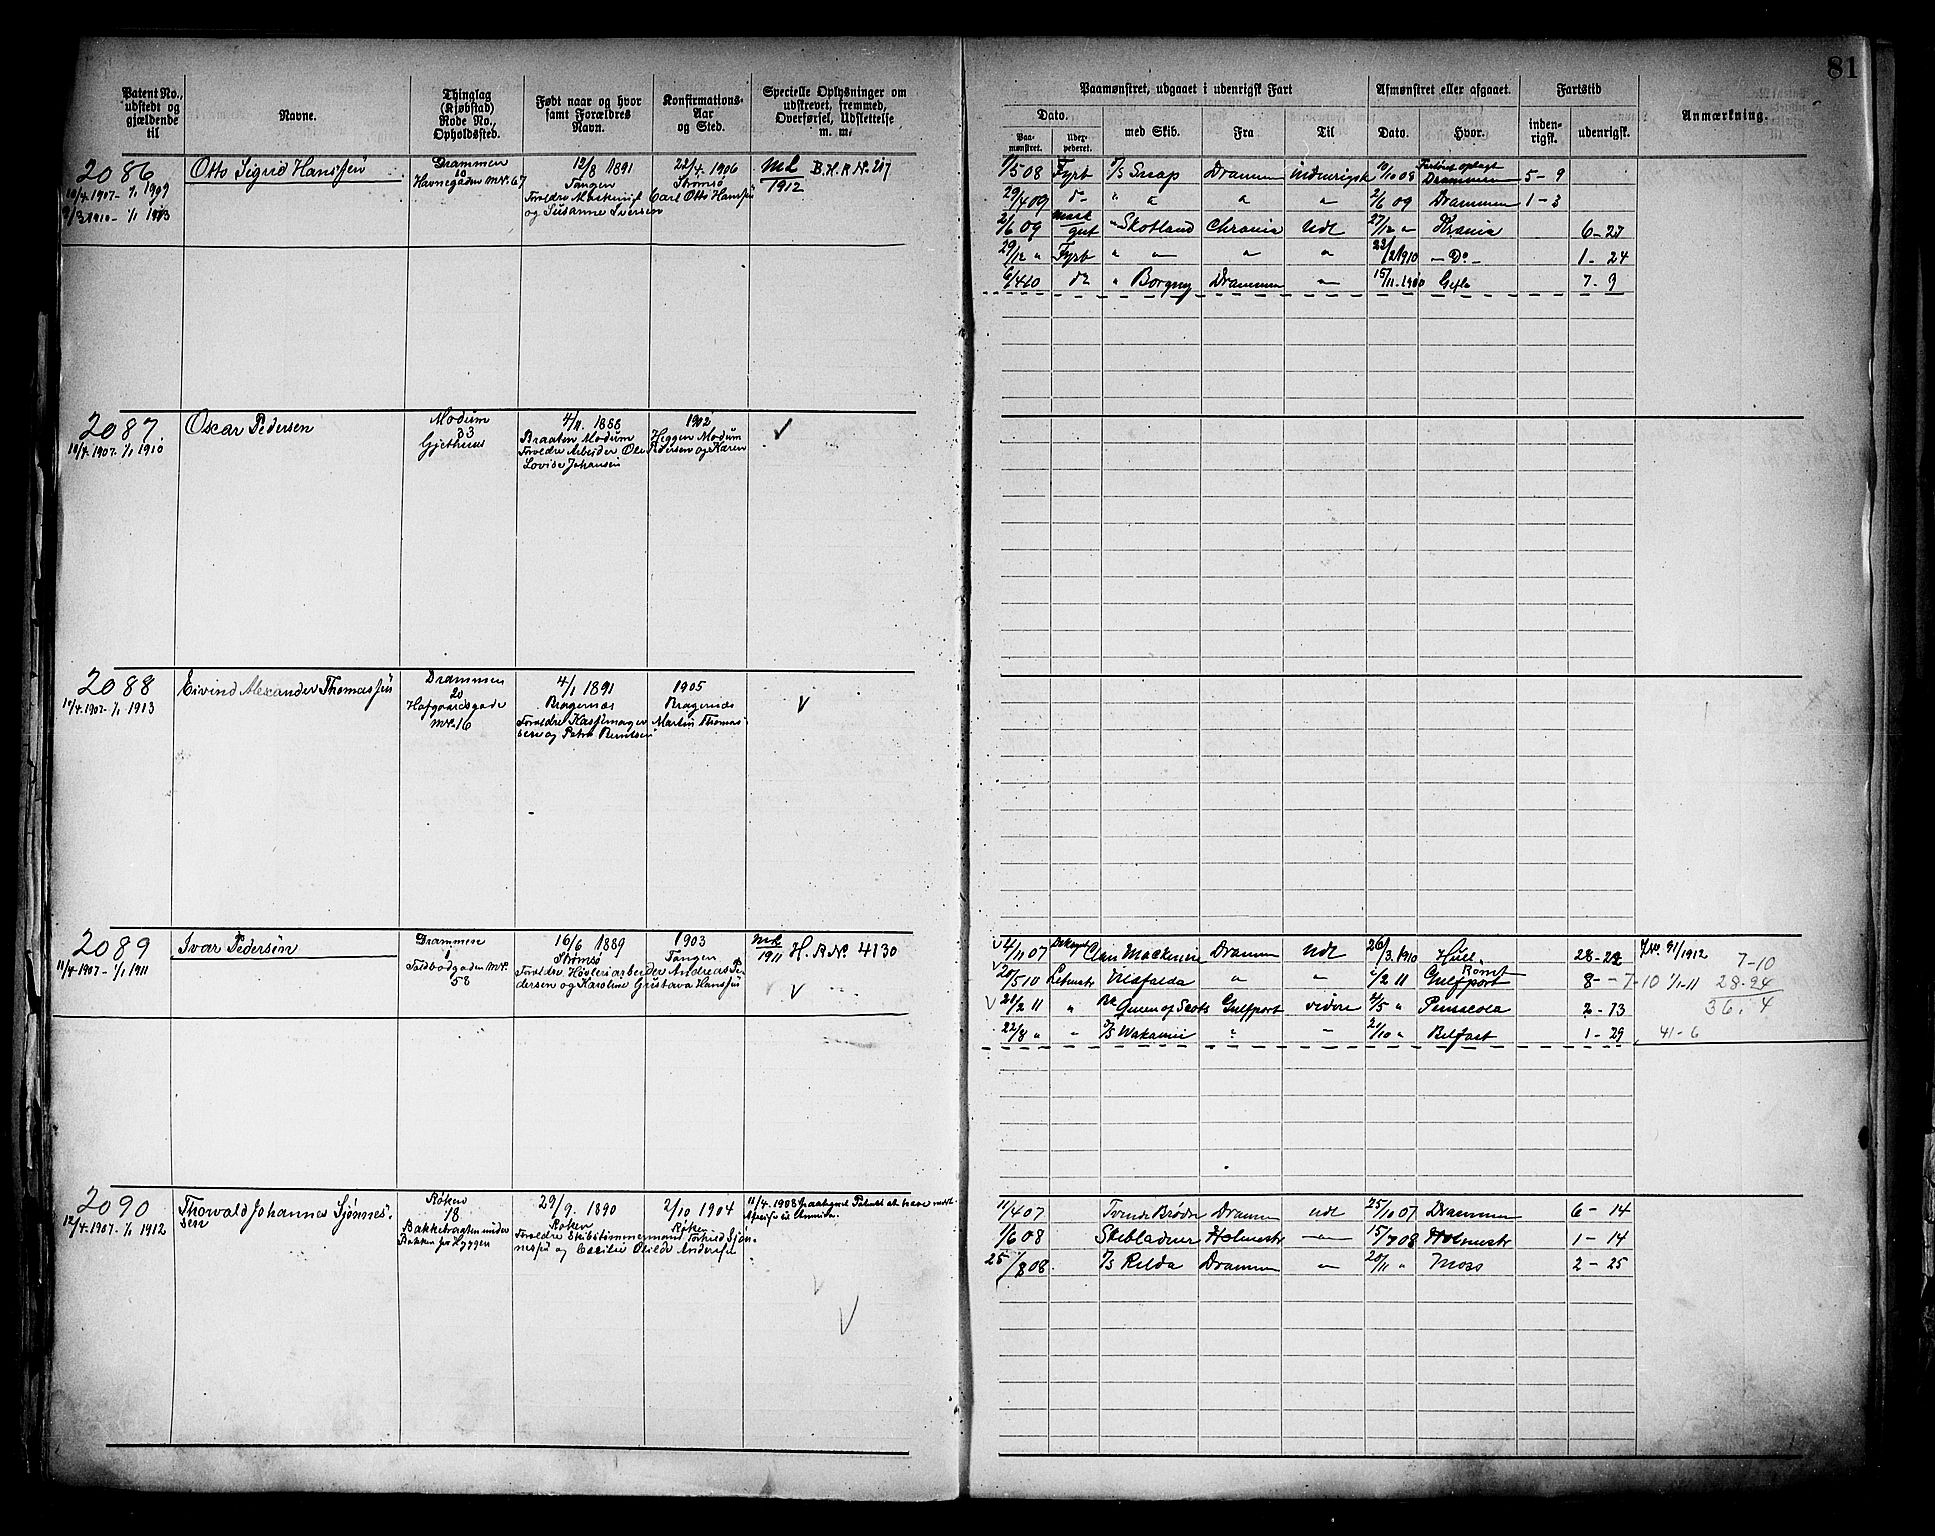 81
Patent No., udstedt og gjældende til
Navne.
Thinglag (Kjøbstad) Rode No., Opholdssted.
Født naar og hvor samt Forældres Navn.
Konfirmations-Aar og Sted.
Specielle Oplysninger om udskrevet, fremmed, Overførsel, Udslettelse m. m.
Paamønstret, udgaaet i udenrigsk Fart
Afmønstret eller afgaaet.
Fartstid
Anmærkning.
Dato.
Paamønstret.
med Skib.
Fra
Til
Dato.
Hvor.
indenrigsk.
udenrigsk.
2086
11/4.1907-1/1 1909
1/1 1913
Otto Sigrid Hanssen
Drammen
10
Havnegaden M.Nr. 67
12/8 1891
Tangen
22/4. 1906
Strømsø
Forældre Maskinist Carl Otto Hanssen
og Susanne Iversen
mk/1912 B.H.R. Nr. 217
1/5 08 Fyrb S/S Snap Drammen indenrigsk 10/10 08 Drammen 5-9
29/4 09 do " " " " 2/6 09 Drammen 1-3
2/6 09 " Skotland Chrania Udl 27/12 " Krania 6-27
29/12 " Fyrb " " " " 23/2 1910 -Do- 1-24
6/4 10 do " Borgny Drammen " 15/11-1910 Gefle 7-9
2087
11/4.1907-1/1 1910
Oscar Pedersen
Modum
33
Gjethuus
4/11. 1888
Braaten Modum
1902
Heggen Modum
Forældre Arbeider Ole Pedersen og Karen
Lovise Johansen
2088
11/4.1907-1/1 1913
Eivind Alexander Thomassen
Drammen
20
Hofgaardsgade
M.Nr. 16
4/1 1891
Bragernæs
1905
Bragernæs
Forældre Martin Thomassen og Berntsen
2089
11/4.1907-1/1 1911
Ivar Pedersen
Drammen
Toldbodgaden M.Nr.
58
16/6 1889
Strømsø
1903
Tangen
Forældre Høvleriarbeider Andreas Pedersen og Karoline Gustava Hanssen
mk/1911 H. R. Nr. 4130
4/11 07 Clan Mackenzie Drammen Udl 26/3.1910 Hull 28-22
20/5 10 Letmatr " " 1/2 11 Gulfport 8- 7-10 1/1-11
21/2 11 " Queen of Scots Gulfport videre 4/5 " Pensacola 2-13
22/8 " " S/S Wakamie " " 21/10 " Belfast 1-29
91/1912
7-10
28-24
36.4
41-6
2090
12/4.1907-1/1 1912
Thorvald Johannes Sjønnessen
Røken
18
Bakkebraaten under
Bakken pr Hyggen
29/9. 1890
Røken
2/10 1904
Røken
Forældre Skibstømmermand Torkild Sjønnessen og Cecilie Olilde Andersen
11/4 07 Tvende Brødre Drammen udl 25/10 07 Drammen 6-14
1/6 08 Skibladner Holmestr " 15/7 08 Holmestr 1-14
25/8 08 S/S Rilda Drammen " 20/11 " Moss 2-25